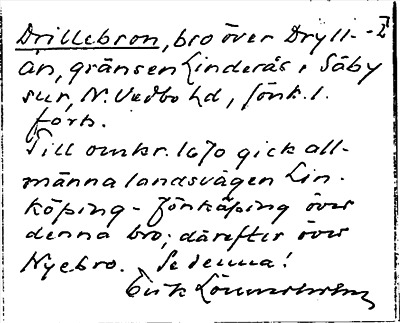 Drillebron, bro över Dryll-
ån, gränsen Linderås, Säby
snr, N. Vedbo hd, Jönk. l.
förh.
Till omkr. 1670 gick all-
männa landsvägen Lin-
köping - Jönköping över
denna bro; därefter över
Nyebro. Se denna!
Erik